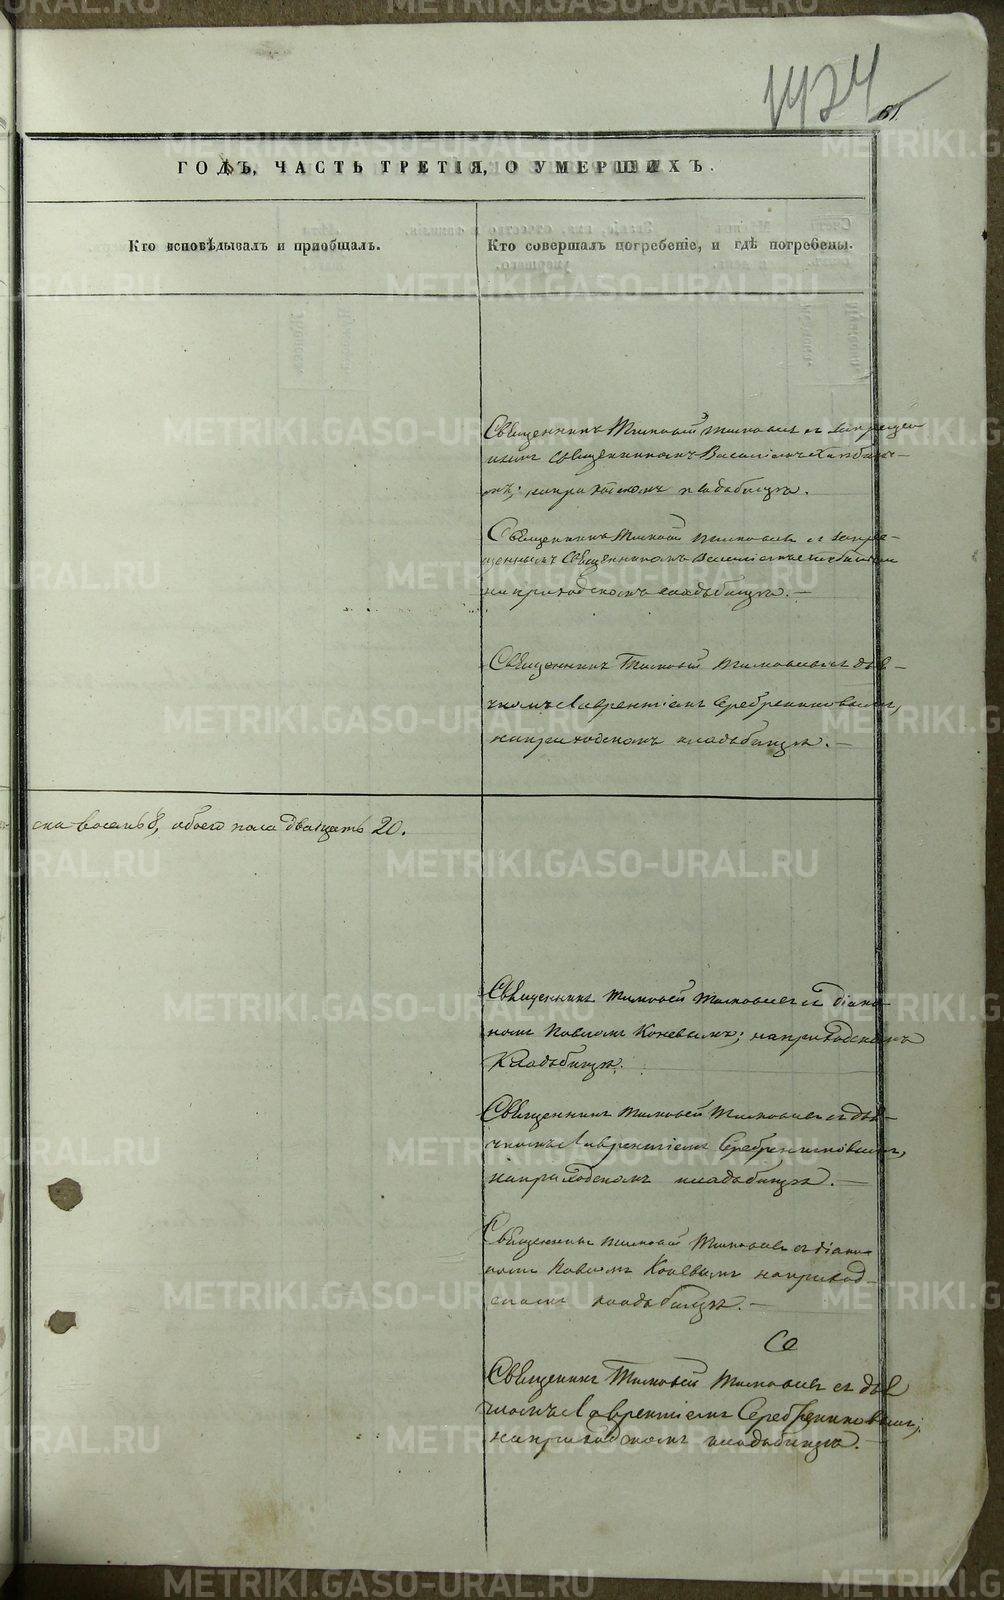 1424
61.
ГОДЪ, ЧАСТЬ ТРЕТІЯ, О УМЕРШИХЪ.
Кто исповѣдывалъ и пріобщалъ.
Кто совершалъ погребеніе, и гдѣ погребены.
Священникъ Тимофей Тимофеевъ съ запрещен
нымъ священникомъ Василіемъ
на приходскомъ кладбищѣ.
Священникъ Тимофей Тимофеевъ съ запре-
щеннымъ Священникомъ Василіемъ
на приходскомъ кладбищѣ. —
Священникъ Тимофей Тимофеевъ съ дья-
чкомъ Лаврентіемъ Серебренниковымъ,
на приходскомъ кладбищѣ. —
ска восемь 8, обоего пола двадцать 20.
Священникъ Тимофей Тимофеевъ съ діако-
номъ Павломъ Коневымъ; на приходскомъ
кладбищѣ.
Священникъ Тимофей Тимофеевъ съ дья-
чкомъ Лаврентіемъ Серебренниковымъ,
на приходскомъ кладбищѣ. —
Священникъ Тимофей Тимофеевъ съ діако-
номъ Павломъ Коневымъ на приход-
скомъ кладбищѣ. —
Се
Священникъ Тимофей Тимофеевъ съ дья
чкомъ Лаврентіемъ Серебренниковымъ;
на приходскомъ кладбищѣ. —
METRIKI.GASO-URAL.RU